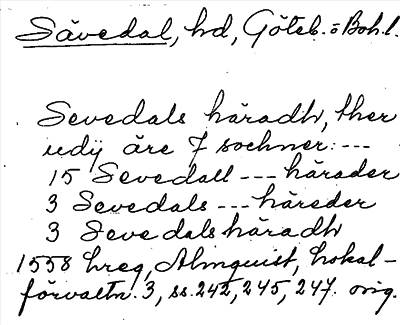 Sävedal, hd, Göteb. o Boh. l.
Sevedals häradh, ther
udij äre 7 sochner: ---
15 Sevedall --- härader
3 Sevedals --- häreder
3 Sevedals häradh
1558 hreg, Almquist, Lokal-
förvaltn. 3, ss. 242, 245, 247. orig.